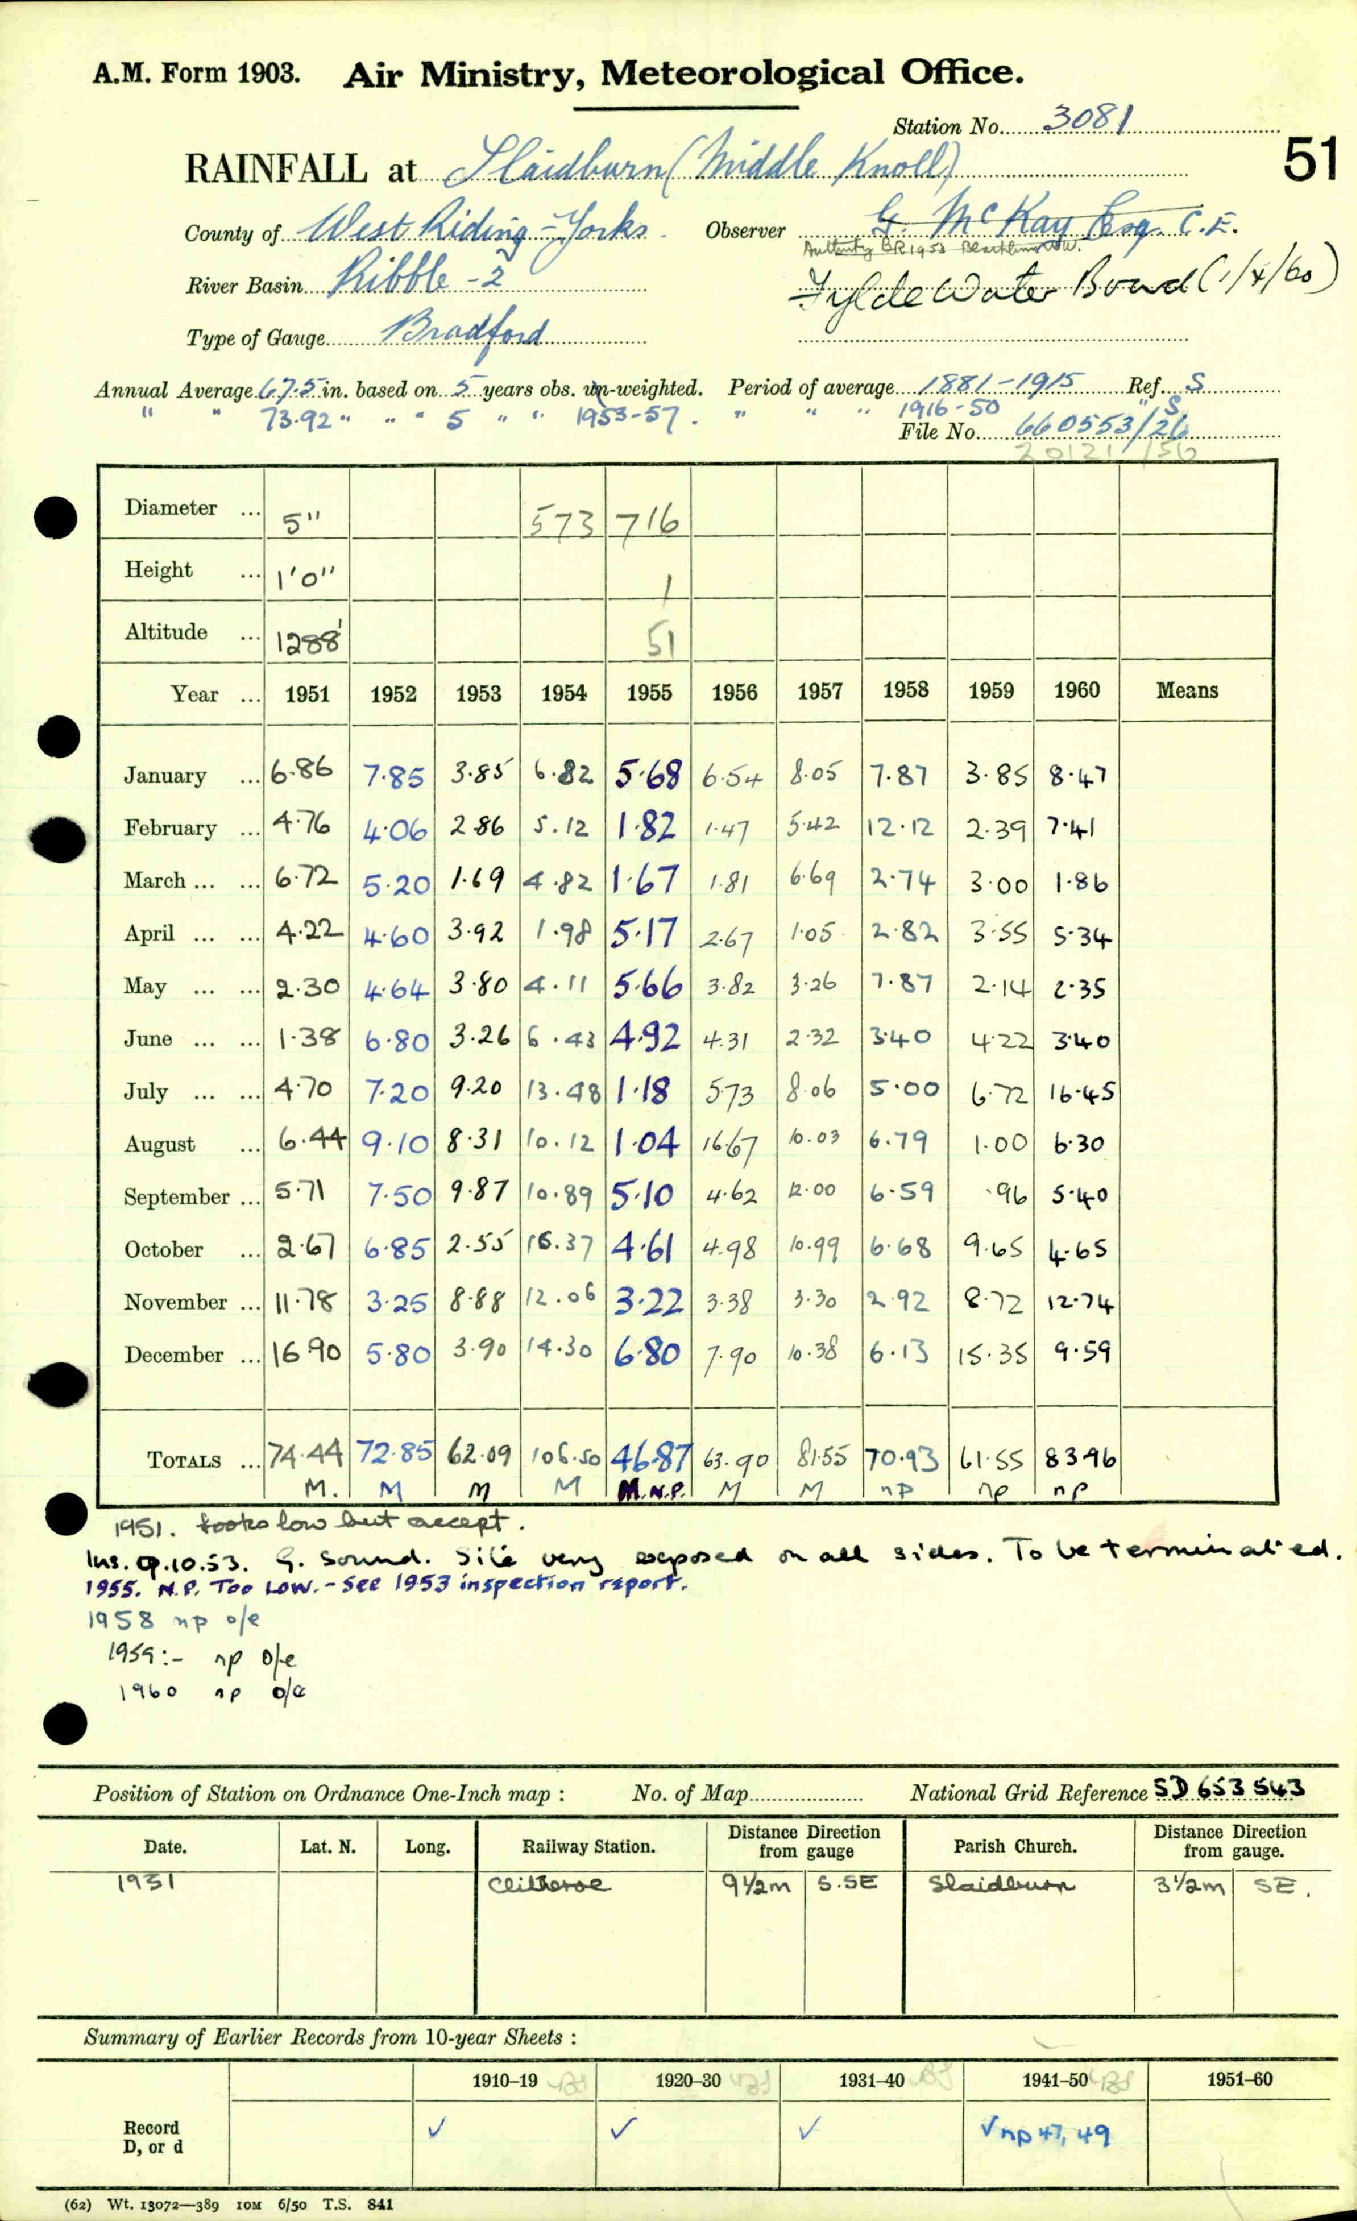 A.M. Form 1903. Air Ministry, Meteorological Office.
Station No. 3081
51
RAINFALL at Slaidburn (Middle Knoll)
County of West Riding - Yorks. Observer G. McKay Esq. C.E.
Authority BR1953 Blackburn W.W.
River Basin Ribble - 2 Fylde Water Board (1/4/60)
Type of Gauge Bradford
Annual Average 67.5 in. based on 5 years obs. un-weighted. Period of average 1881-1915 Ref. S
" " 73.92 " " " 5 " " 1953-57. " " " 1916-50 " S.
File No. 660553/26
20121/56
Diameter ... 5" 573 716
Height ... 1'0" 1
Altitude ... 1288' 51
Year ... 1951 1952 1953 1954 1955 1956 1957 1958 1959 1960 Means
January ... 6.86 7.85 3.85 6.82 5.68 6.54 8.05 7.87 3.85 8.47
February ... 4.76 4.06 2.86 5.12 1.82 1.47 5.42 12.12 2.39 7.41
March ... ... 6.72 5.20 1.69 4.82 1.67 1.81 6.69 2.74 3.00 1.86
April ... ... 4.22 4.60 3.92 1.98 5.17 2.67 1.05 2.82 3.55 5.34
May ... ... 2.30 4.64 3.80 4.11 5.66 3.82 3.26 7.87 2.14 2.35
June ... ... 1.38 6.80 3.26 6.43 4.92 4.31 2.32 3.40 4.22 3.40
July ... ... 4.70 7.20 9.20 13.48 1.18 5.73 8.06 5.00 6.72 16.45
August ... 6.44 9.10 8.31 10.12 1.04 16.67 10.03 6.79 1.00 6.30
September ... 5.71 7.50 9.87 10.89 5.10 4.62 12.00 6.59 .96 5.40
October ... 2.67 6.85 2.55 16.37 4.61 4.98 10.99 6.68 9.65 4.65
November ... 11.78 3.25 8.88 12.06 3.22 3.38 3.30 2.92 8.72 12.74
December ... 16.90 5.80 3.90 14.30 6.80 7.90 10.38 6.13 15.35 9.59
TOTALS ... 74.44 72.85 62.09 106.50 46.87 63.90 81.55 70.93 61.55 83.96
M. M M M M.N.P. M M np np np
1951. Looks low but accept.
Ins. 9.10.53. G. Sound. Site very exposed on all sides. To be terminated.
1955. N.P. Too Low. - See 1953 inspection report.
1958 np o/e
1959:- np o/e
1960 np o/e
Position of Station on Ordnance One-Inch map : No. of Map National Grid Reference SD 653 543
Date. Lat. N. Long. Railway Station. Distance Direction from gauge Parish Church. Distance Direction from gauge.
1931 Clitheroe 9½m S.SE Slaidburn 3½m SE.
Summary of Earlier Records from 10-year Sheets :
1910–19 1920–30 1931–40 1941–50 1951–60
Record D, or d ✓ ✓ ✓ ✓ np 47, 49
(62) Wt. 13072—389 10M 6/50 T.S. 841